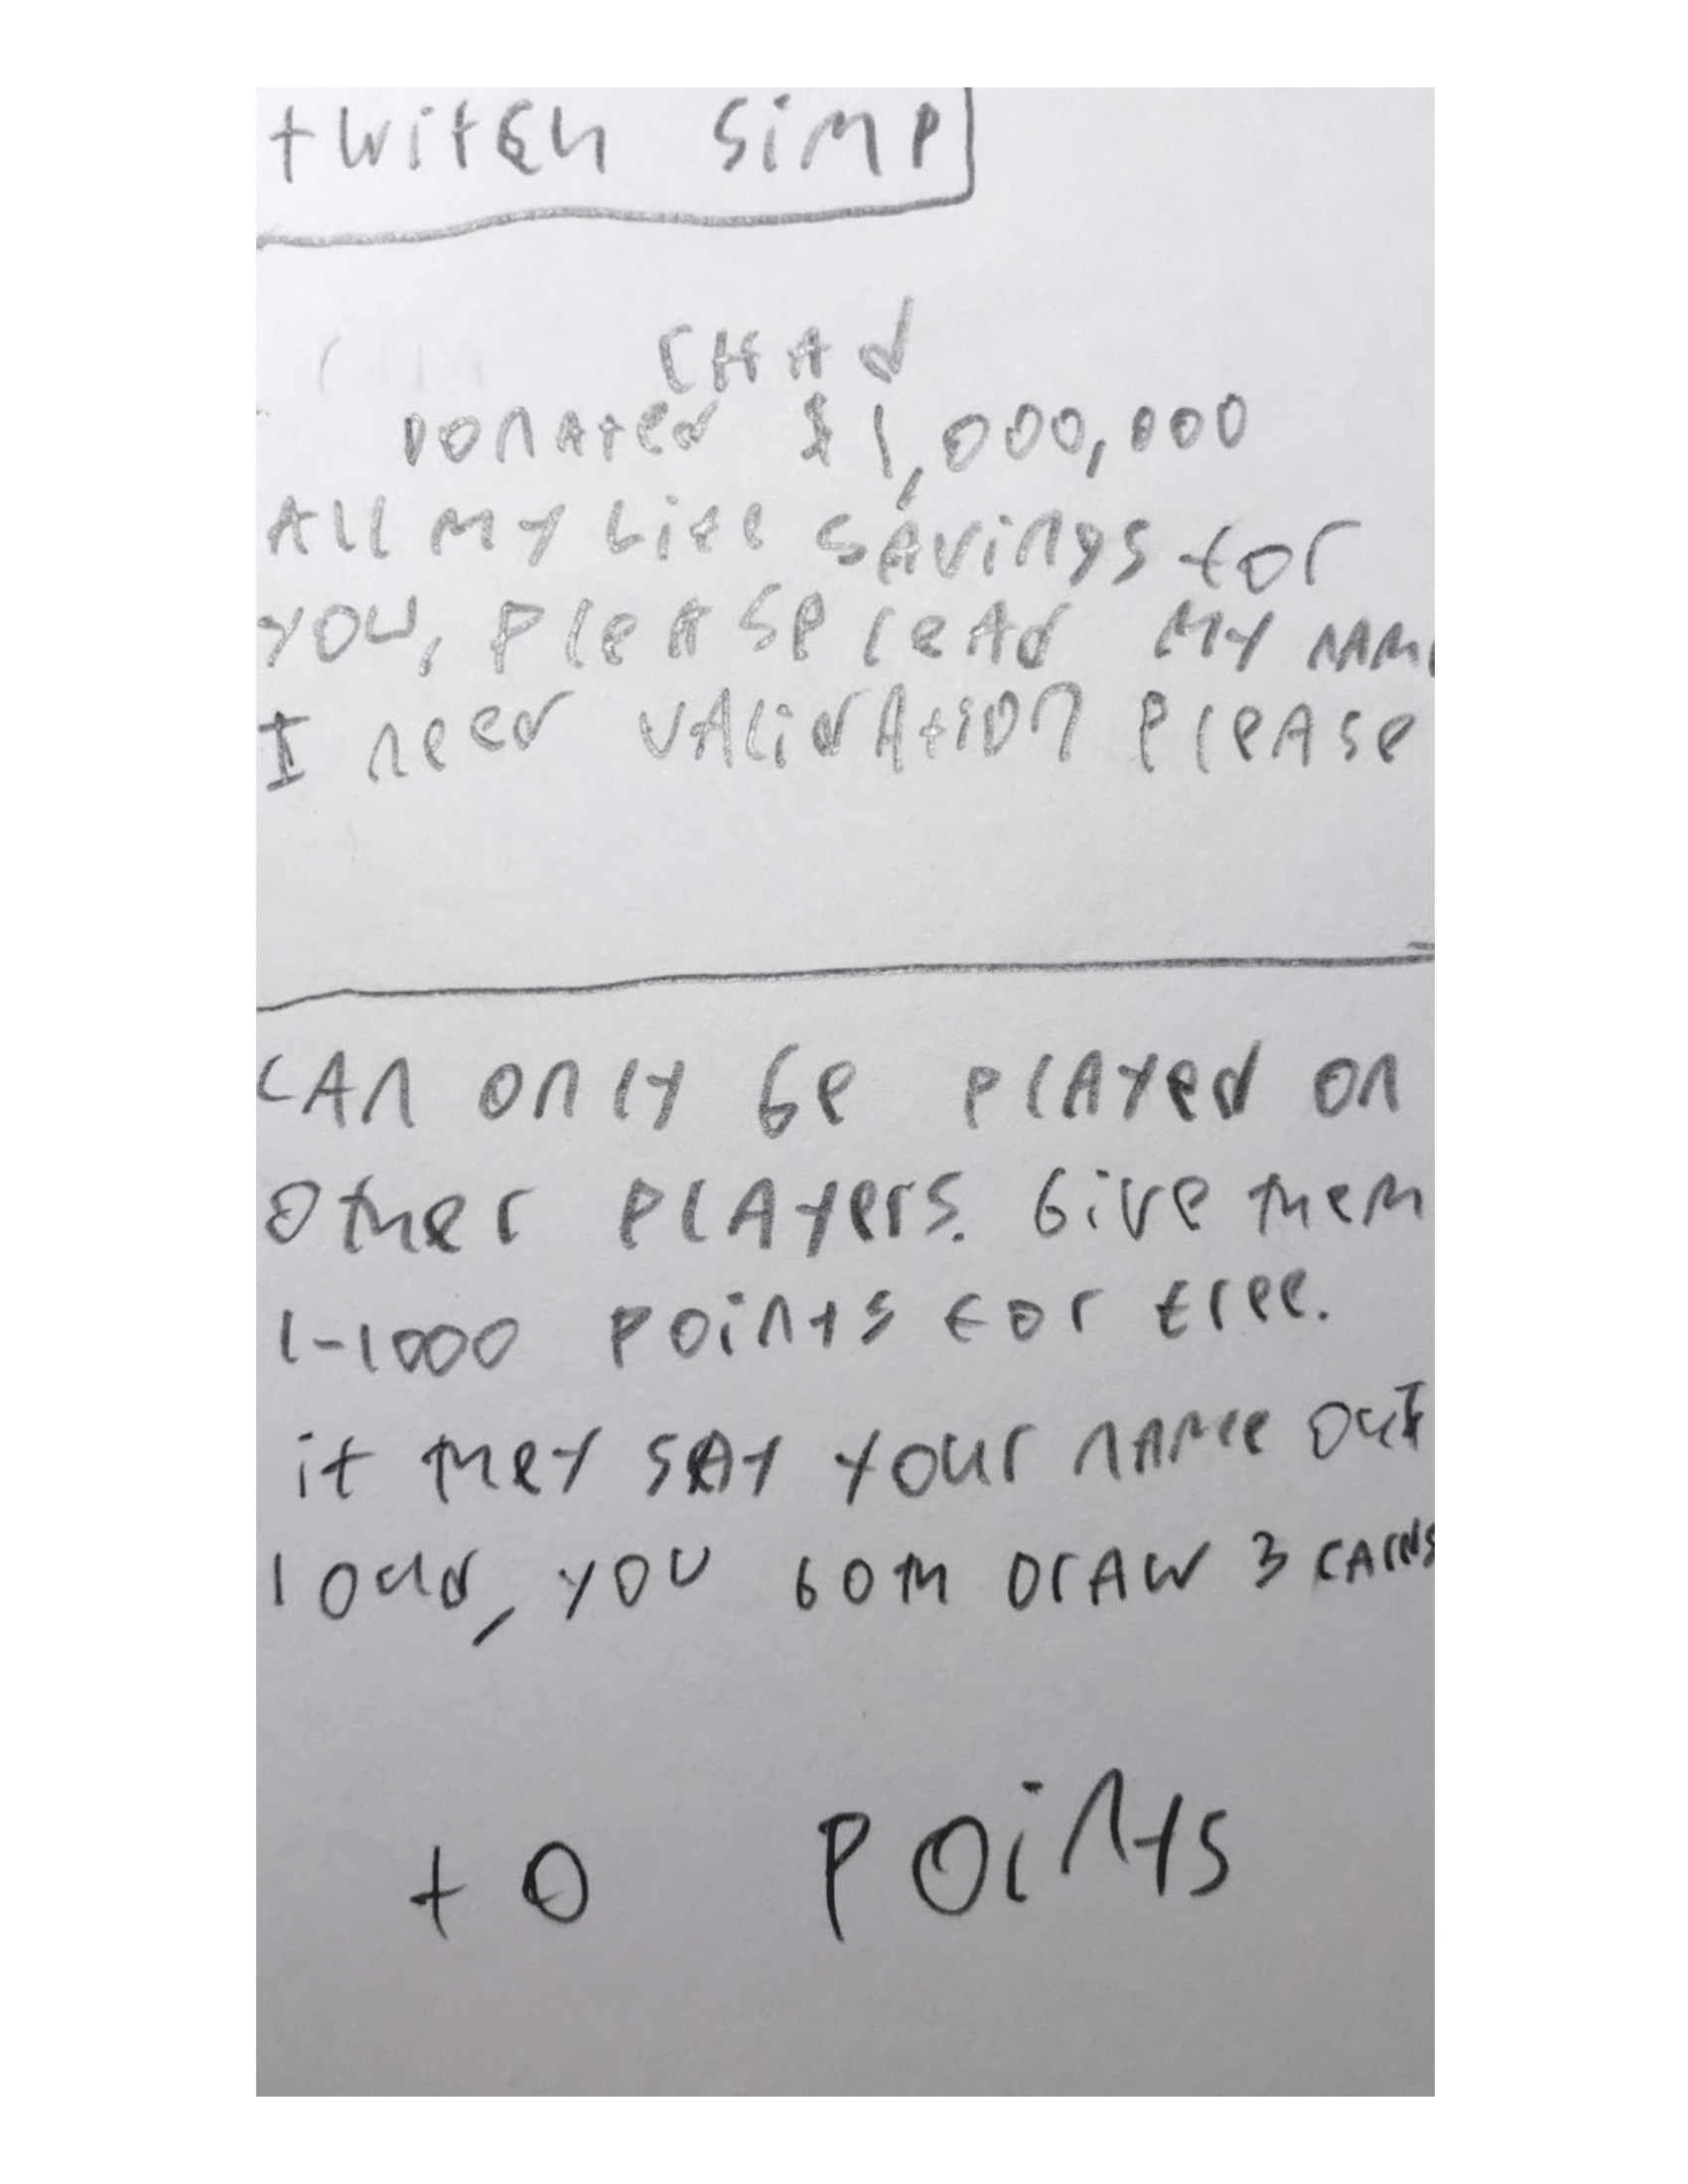 twitch simp
CHAd
DonAted $1,000,000
All my Life sAvings for
you, pleAse reAd my nAme
I need vAlidAtion pleAse
CAn only be plAyed on
other plAyers. Give them
1-1000 points for free.
if they sAy your nAme out
loud, you both DrAw 3 cArds
+0 points